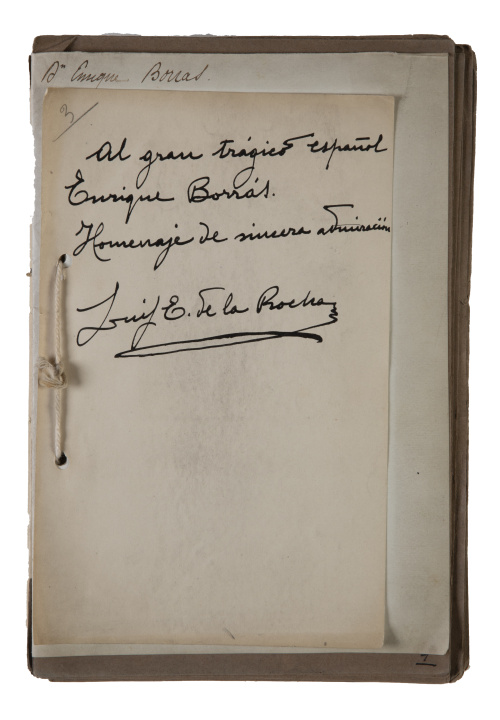 Dn Enrique Borras.
3
Al gran trágico español
Enrique Borrás.
Homenaje de sincera admiración
Luis E. de la Rocha
7